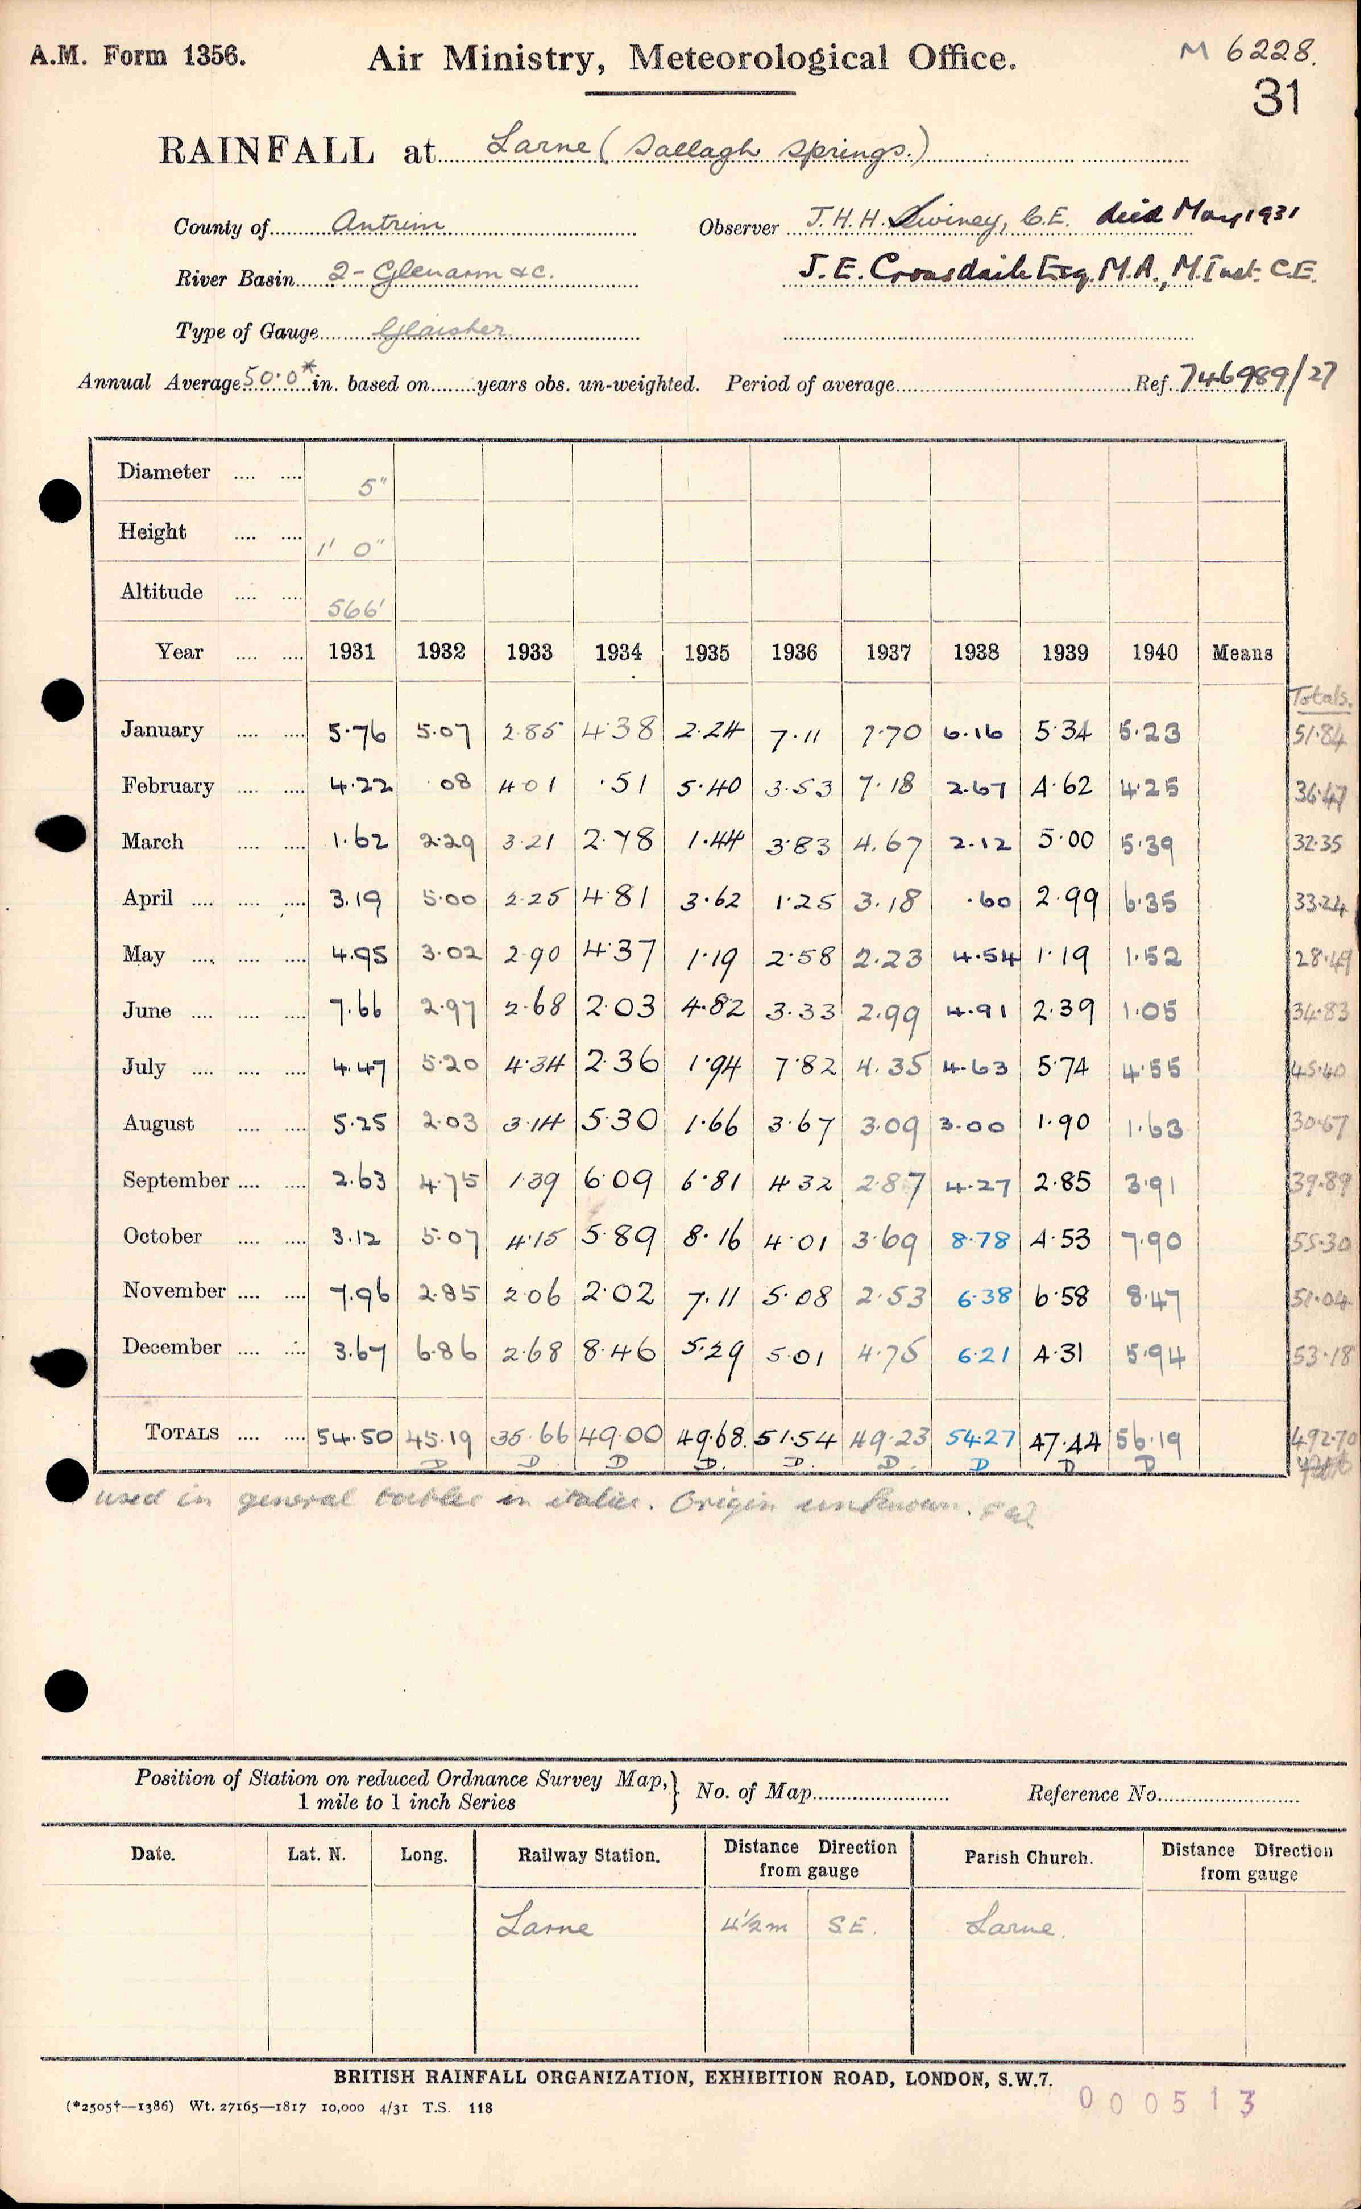 A.M. Form 1356. Air Ministry, Meteorological Office. M 6228.
31
RAINFALL at Larne (Sallagh Springs.)
County of Antrim Observer J.H.H. Swiney, C.E. died May 1931
River Basin 2 - Glenarm &c. J. E. Croasdaile Esq. M.A., M.Inst. C.E.
Type of Gauge Glaisher
Annual Average 50.0* in. based on years obs. un-weighted. Period of average Ref. 746989/27
Diameter 5"
Height 1' 0"
Altitude 566'
Year 1931 1932 1933 1934 1935 1936 1937 1938 1939 1940 Means
Totals.
January 5.76 5.07 2.85 4.38 2.24 7.11 7.70 6.16 5.34 5.23 51.84
February 4.22 .08 4.01 .51 5.40 3.53 7.18 2.67 4.62 4.25 36.47
March 1.62 2.29 3.21 2.78 1.44 3.83 4.67 2.12 5.00 5.39 32.35
April 3.19 5.00 2.25 4.81 3.62 1.25 3.18 .60 2.99 6.35 33.24
May 4.95 3.02 2.90 4.37 1.19 2.58 2.23 4.54 1.19 1.52 28.49
June 7.66 2.97 2.68 2.03 4.82 3.33 2.99 4.91 2.39 1.05 34.83
July 4.47 5.20 4.34 2.36 1.94 7.82 4.35 4.63 5.74 4.55 45.40
August 5.25 2.03 3.14 5.30 1.66 3.67 3.09 3.00 1.90 1.63 30.67
September 2.63 4.75 1.39 6.09 6.81 4.32 2.87 4.27 2.85 3.91 39.89
October 3.12 5.07 4.15 5.89 8.16 4.01 3.69 8.78 4.53 7.90 55.30
November 7.96 2.85 2.06 2.02 7.11 5.08 2.53 6.38 6.58 8.47 51.04
December 3.67 6.86 2.68 8.46 5.29 5.01 4.75 6.21 4.31 5.94 53.18
TOTALS 54.50 45.19 35.66 49.00 49.68. 51.54 49.23 54.27 47.44 56.19 492.70
D D D D. D. D. D D D
used in general tables in italic. Origin unknown.
Position of Station on reduced Ordnance Survey Map,} No. of Map Reference No.
1 mile to 1 inch Series
Date. Lat. N. Long. Railway Station. Distance Direction from gauge Parish Church. Distance Direction from gauge
Larne 4½m S.E. Larne.
BRITISH RAINFALL ORGANIZATION, EXHIBITION ROAD, LONDON, S.W.7.
(*2505†—1386) Wt. 27165—1817 10,000 4/31 T.S. 118
000513